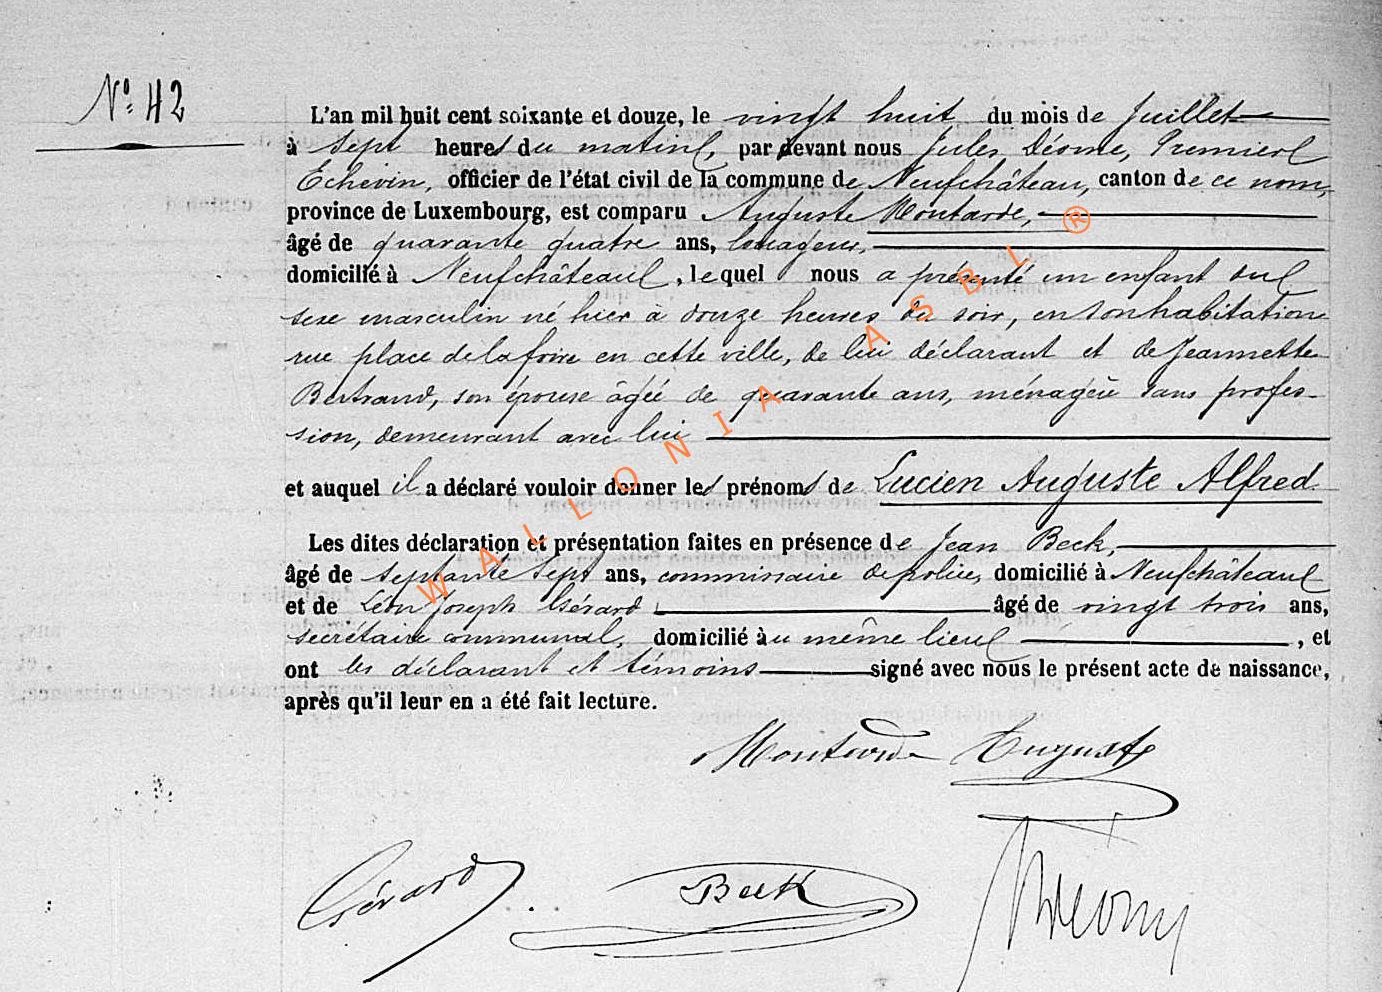 N° 42
L'an mil huit cent soixante et douze, le vingt huit du mois de Juillet
à sept heures du matin, par devant nous Jules Déome, Premier
Echevin, officier de l'état civil de la commune de Neufchâteau, canton de ce nom,
province de Luxembourg, est comparu Auguste Moutarde,
âgé de quarante quatre ans, louageur,
domicilié à Neufchâteau, lequel nous a présenté un enfant du
sexe masculin né hier à douze heures du soir, en son habitation
rue place de la foire en cette ville, de lui déclarant et de Jeannette
Bertrand, son épouse âgée de quarante ans, ménagère sans profes-
sion, demeurant avec lui
et auquel il a déclaré vouloir donner les prénoms de Lucien Auguste Alfred
Les dites déclaration et présentation faites en présence de Jean Beck,
âgé de septante sept ans, commissaire de police, domicilié à Neufchâteau
et de Léon Joseph Gérard âgé de vingt trois ans,
secrétaire communal, domicilié au même lieu, et
ont les déclarant et témoins signé avec nous le présent acte de naissance,
après qu'il leur en a été fait lecture.
Moutarde Auguste
Gérard Beck Déome
WALLONIA ASBL ®